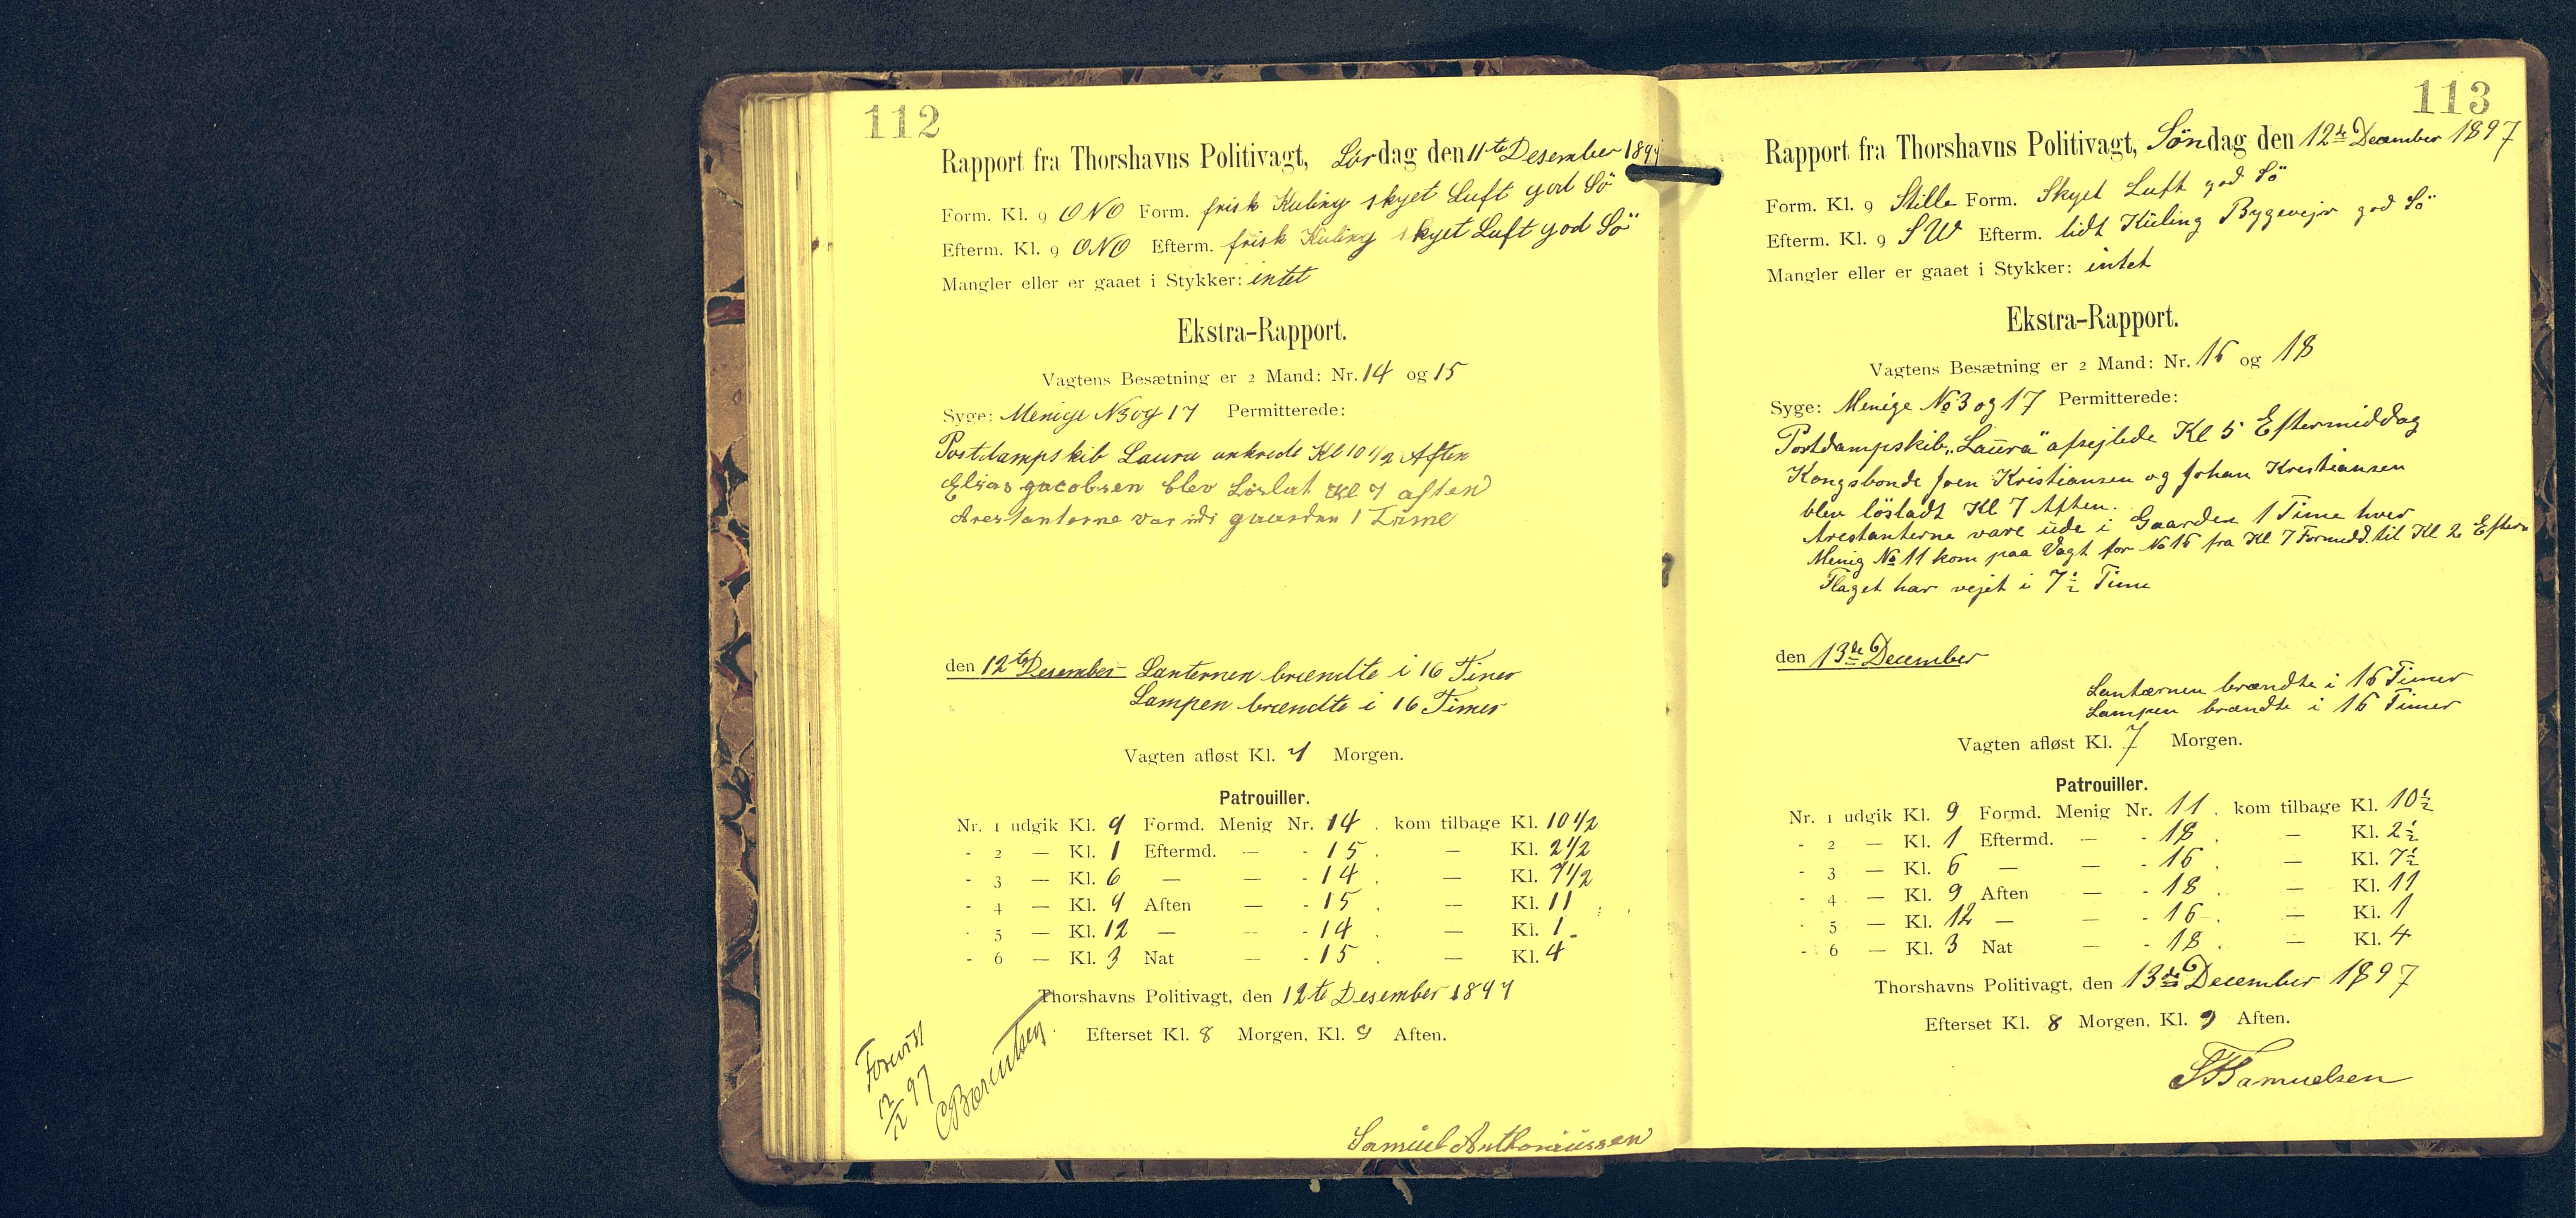 112
Rapport fra Thorshavns Politivagt, Lördag den 11te Desember 1897
Form. Kl. 9 ONO Form. frisk Kuling skyet Luft god Sö
Efterm. Kl. 9 ONO Efterm. frisk Kuling skyet Luft god Sö
Mangler eller er gaaet i Stykker: intet
Ekstra-Rapport.
Vagtens Besætning er 2 Mand: Nr. 14 og 15
Syge: Menige N3 og 17 Permitterede:
Postdampskib Laura ankrede Kl 10 1/2 Aften
Elias jacobsen blev Löslat Kl 7 aften
Arestanterne var udi gaarden 1 Time
den 12te Desember Lanternen brændte i 16 Timer
Lampen brændte i 16 Timer
Vagten afløst Kl. 7 Morgen.
Patrouiller.
Nr. 1 udgik Kl. 9 Formd. Menig Nr. 14 . kom tilbage Kl. 10 1/2
- 2 — Kl. 1 Eftermd. — - 15 . — Kl. 2 1/2
- 3 — Kl. 6 — — - 14 . — Kl. 7 1/2
- 4 — Kl. 9 Aften — - 15 . — Kl. 11
- 5 — Kl. 12 — — - 14 . — Kl. 1
- 6 — Kl. 3 Nat — - 15 . — Kl. 4
Thorshavns Politivagt, den 12te Desember 1897
Efterset Kl. 8 Morgen, Kl. 9 Aften.
Forevist
12/12 97
CBærentsen
Samuel Anthoniussen
113
Rapport fra Thorshavns Politivagt, Söndag den 12te December 1897
Form. Kl. 9 Stille Form. Skyet Luft god Sö
Efterm. Kl. 9 SW Efterm. lidt Kuling Bygevejr god Sö
Mangler eller er gaaet i Stykker: intet
Ekstra-Rapport.
Vagtens Besætning er 2 Mand: Nr. 16 og 18
Syge: Menige No 3 og 17 Permitterede:
Postdampskib „Laura" afsejlede Kl 5 Eftermiddag
Kongsbonde Joen Kristiansen og Johan Krestiansen
blev lösladt Kl 7 Aften.
Arestanterne vare ude i Gaarden 1 Time hver
Menig No 11 kom paa Vagt for No 16 fra Kl 7 Formidd. til Kl 2 Efterm
Flaget har vejet i 7 1/2 Time
den 13de December
Lantærnen brændte i 16 Timer
Lampen brændte i 16 Timer
Vagten afløst Kl. 7 Morgen.
Patrouiller.
Nr. 1 udgik Kl. 9 Formd. Menig Nr. 11 . kom tilbage Kl. 10 1/2
- 2 — Kl. 1 Eftermd. — - 18 . — Kl. 2 1/2
- 3 — Kl. 6 — — - 16 . — Kl. 7 1/2
- 4 — Kl. 9 Aften — - 18 . — Kl. 11
- 5 — Kl. 12 — — - 16 . — Kl. 1
- 6 — Kl. 3 Nat — - 18 . — Kl. 4
Thorshavns Politivagt, den 13de December 1897
Efterset Kl. 8 Morgen, Kl. 9 Aften.
Samuelsen